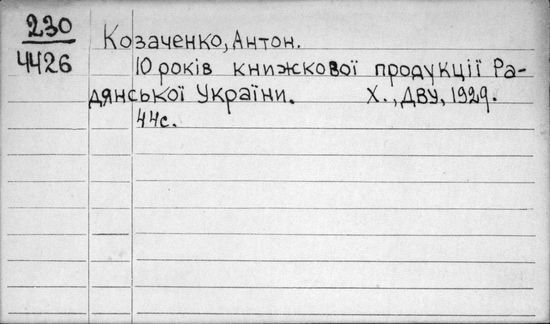 230
4426
Козаченко, Антон.
10 років книжкової продукції Ра-
дянської України. Х., ДВУ, 1929.
44с.